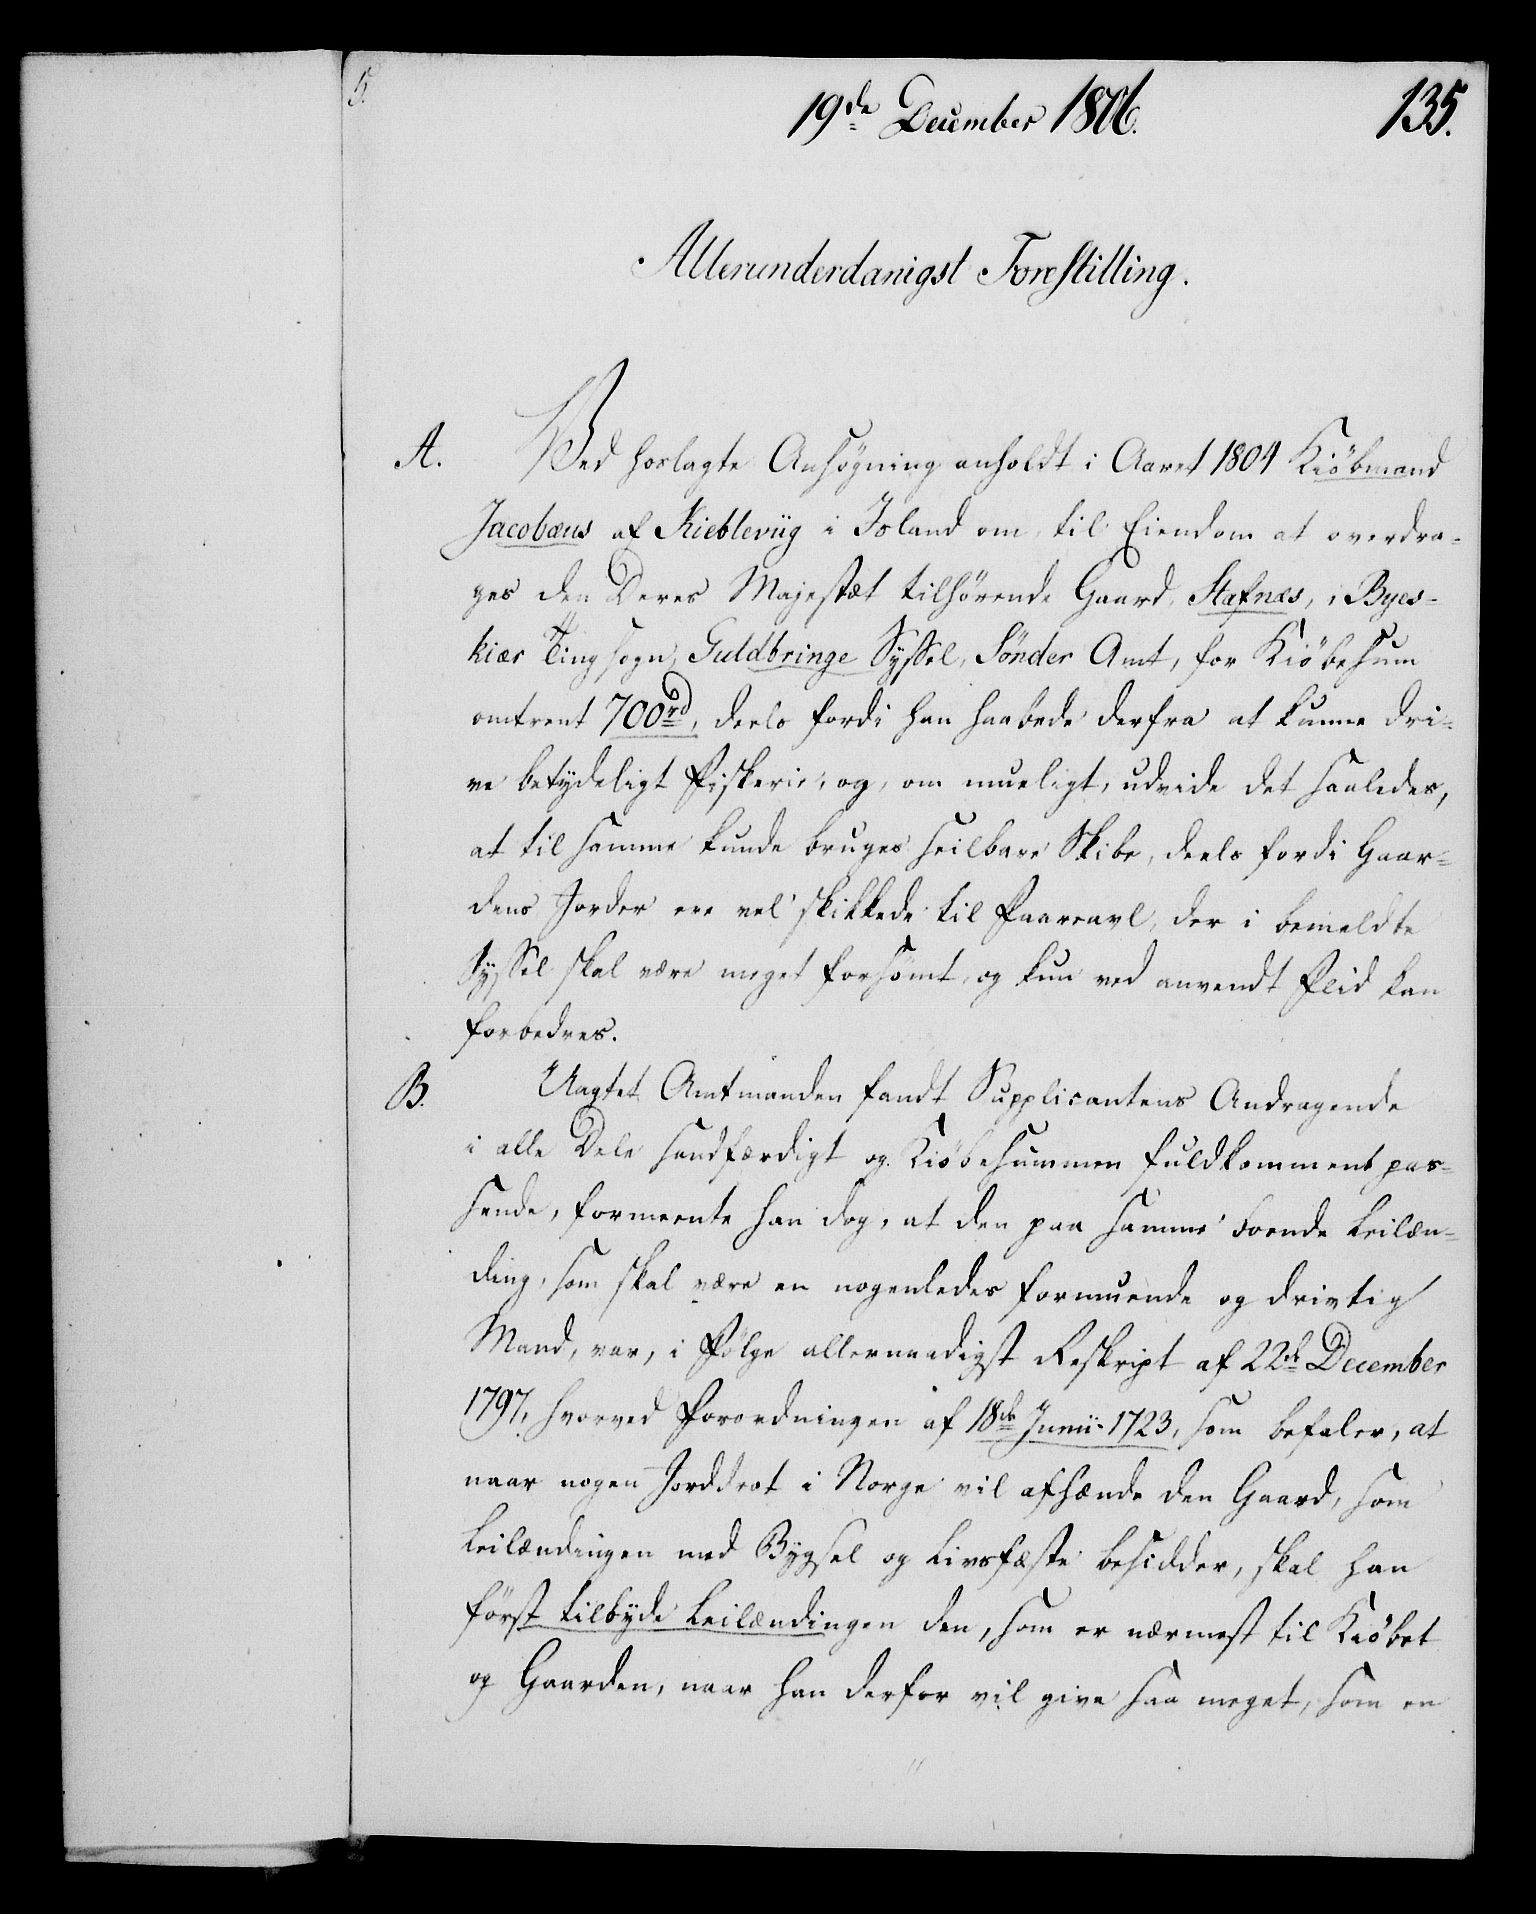 19de December 1806.
135.
Allerunderdanigst Forestilling.
A. Ved hoslagte Ansøgning anholdt i Aaret 1804 Kiöbmand
Jacobæus af Kiebleviig i Island om, til Eiendom at overdra-
ges den Deres Majestæt tilhörende Gaard, Stafnæs, i Byes-
kiær Tingsogn, Guldbringe Syssel, Sönder Amt, for Kiöbesum
omtrent 700 rd, deels fordi han haabede derfra at kunne dri-
ve betydeligt Fiskerie, og, om mueligt, udvide det saaledes,
at til samme kunde bruges seilbare Skibe, deels fordi Gaar-
dens Jorder ere vel skikkede til Faareavl, der i bemeldte
Syssel skal være meget forsömt, og kun ved anvendt Flid kan
forbedres.
B. Uagtet Amtmanden fandt Supplicantens Andragende
i alle Dele sandfærdigt og Kiöbesummen fuldkomment pas-
sende, formeente han dog, at den paa samme boende Leilæn-
ding, som skal være en nogenledes formuende og drivtig
Mand, var, i Fölge allernaadigst Reskript af 22de December
1797, hvorved Forordningen af 18de Junii 1723, som befaler, at
naar nogen Jorddrot i Norge vil afhænde den Gaard, som
Leilændingen med Bygsel og Livsfæste besidder, skal han
först tilbyde Leilændingen den, som er nærmest til Kiöbet
og Gaarden, naar han derfor vil give saa meget, som en